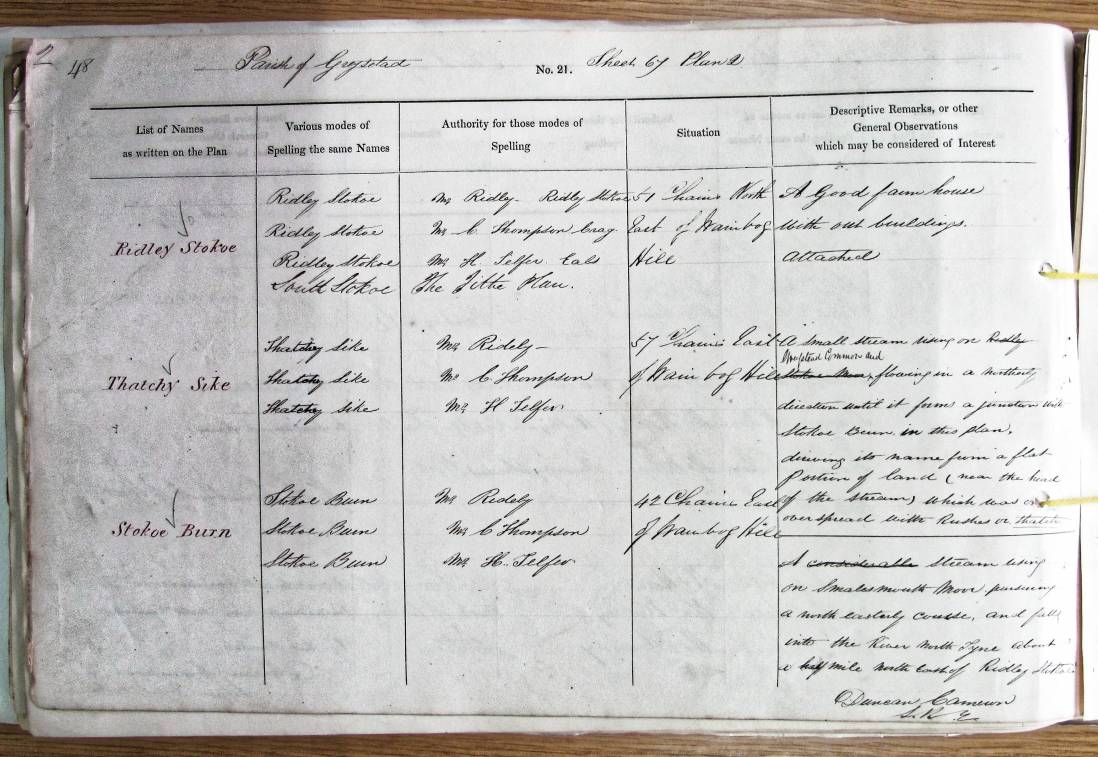 2 48 Parish of Greystead No. 21. Sheet 67 Plan 2
List of Names
as written on the Plan
Various modes of
Spelling the same Names
Authority for those modes of
Spelling
Situation
Descriptive Remarks, or other
General Observations
which may be considered of Interest
Ridley Stokoe
Ridley Stokoe
Ridley Stokoe
Ridley Stokoe
South Stokoe
Mr Ridley - Ridley Stokoe
Mr C. Thompson Crag
Mr H. Telfer Eals
The Tithe Plan.
51 Chains North
East of Wainbog
Hill
A Good farm house
With out buildings.
Attached
Thatchy Sike
Thatchy Sike
Thatchy Sike
Thatchy Sike
Mr Ridely -
Mr C Thompson
Mr H Telfer
57 Chains East
of Wain bog Hill
A small stream rising on Ridley
Greystead Common and
Stokoe Moor, flowing in a northerly
direction until it forms a junction with
Stokoe Burn in this plan,
deriving its name from a flat
portion of land (near the head
of the stream) which was
overspread with Rushes or thatch
Stokoe Burn
Stokoe Burn
Stokoe Burn
Stokoe Burn
Mr Ridely
Mr C Thompson
Mr H. Telfer
42 Chains East
of Wainbog Hill
A considerable stream rising
on Smalesmouth Moor pursuing
a north easterly course, and falls
into the River North Tyne about
a half mile north East of Ridley Stokoe
Duncan Cameron